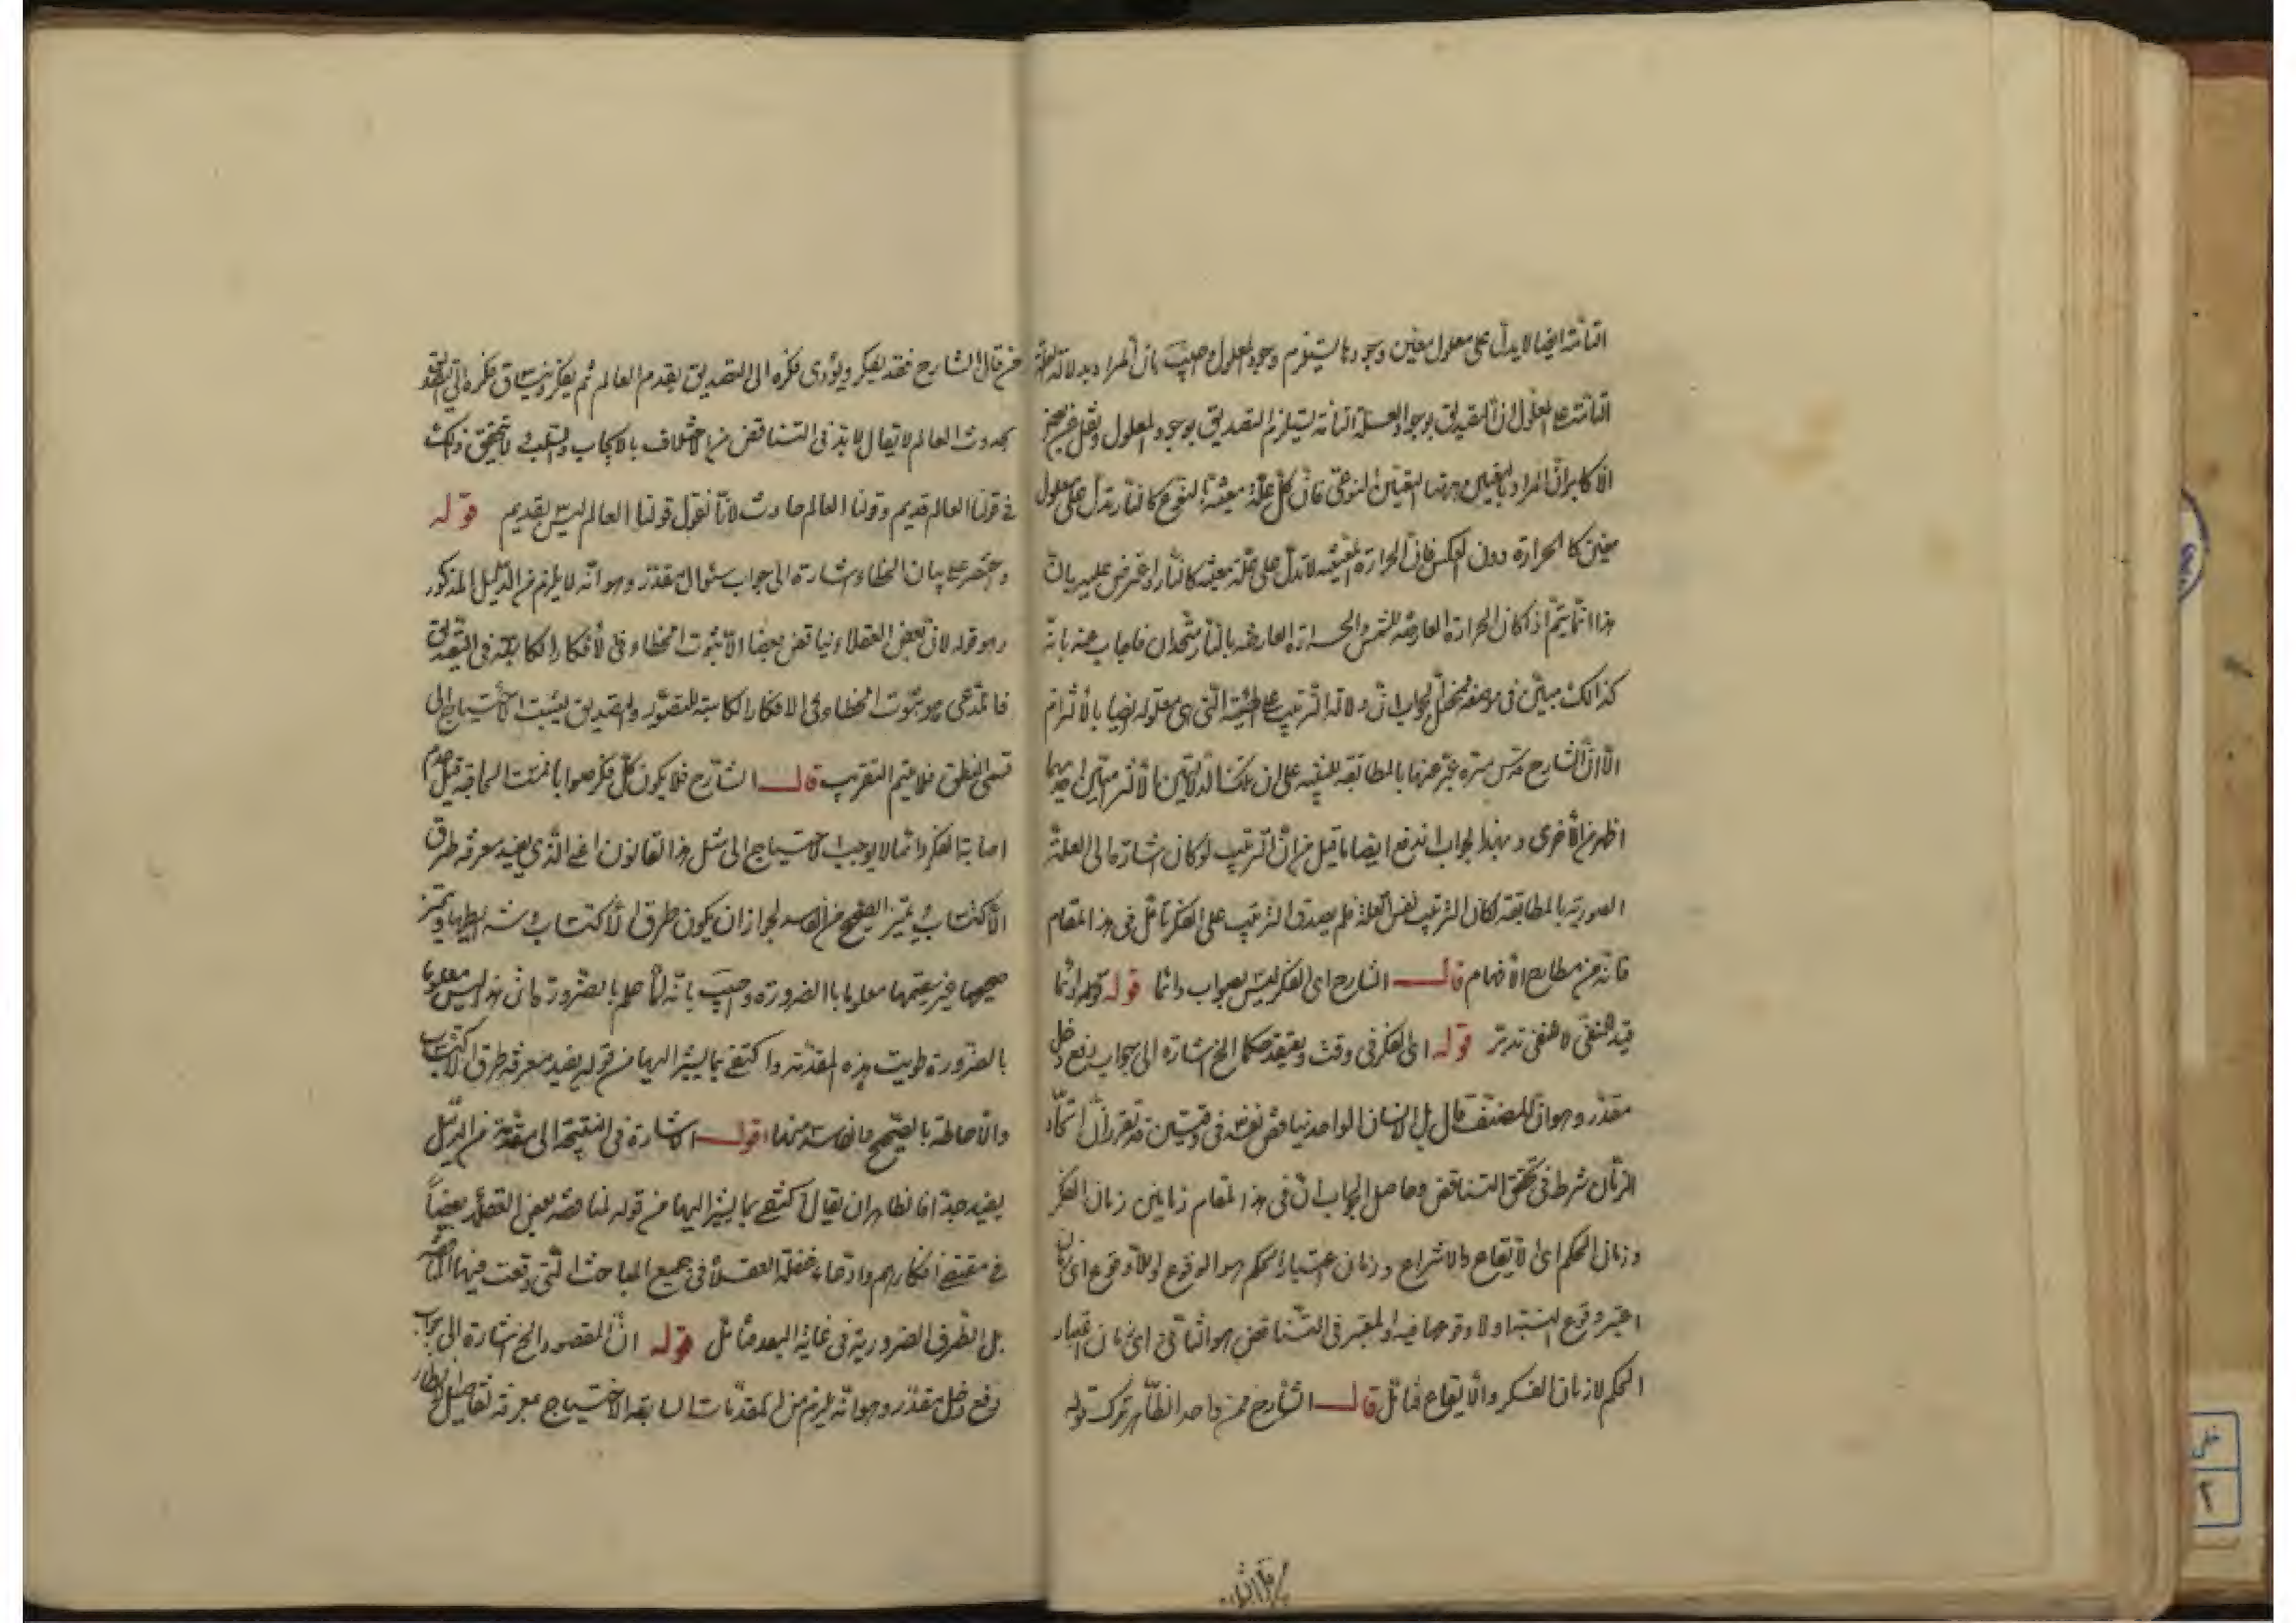 التامة ايضا لا يدل على معلول معين وجودها يستلزم وجود المعلول اجيب بان المراد بدلالة العلة
التامة على المعلول ان التصديق بوجود العلة التامة يستلزم التصديق بوجود المعلول ونقل عن بعض
الاكابر ان المراد بالتعين ههنا التعين النوعى فان كل علة معينة بالنوع كالنار تدل على معلول
معين كالحرارة دون العكس فان الحرارة المعينة لا تدل على علة معينة كالنار واعترض عليه بان
هذا انما يتم اذا كان الحرارة العارضة للشمس والحرارة العارضة بالنار متحدان فاجاب عنه بانه
كذلك مبين فى موضعه الجواب ان دلالة الترتيب على الهيئة التى هى معلوله ايضا بالالتزام
الا ان الشارح قدس سره عبر عنها بالمطابقة للتنبيه على ان تلك الدلالتين الالتزاميتين احديهما
اظهر من الاخرى وبهذا الجواب اندفع ايضا ما قيل من ان الترتيب لو كان اشارة الى العلة
الصورية بالمطابقة لكان الترتيب نفس العلة فلم يصدق الترتيب على الفكر تامل فى هذا المقام
فانه من مطارح الافهام قال الشارح اى الفكر ليس بصواب دائما قوله قوله دائما
قيد المنفى لا النفى تدبر قوله اى الفكر فى وقت ويعتقد حكما الخ اشارة الى جواب دفع دخل
مقدر وهو ان المصنف قال بل الانسان الواحد يناقض نفسه فى وقتين قد تقرر ان اتحاد
الزمان شرط فى تحقق التناقض وحاصل الجواب ان فى هذا المقام زمانين زمان الفكر
وزمان الحكم اى الايقاع والانتزاع وزمان اعتبار الحكم هو الوقوع او اللاوقوع اى زمان
اعتبر وقوع النسبة او لا وقوعها فيه والمعتبر فى التناقض هو الثانى اى زمان اعتبار
الحكم لا زمان الفكر والايقاع فتامل قال الشارح فمن واحد الظاهر ترك قوله
من قال الشارح فقد يفكر ويؤدى فكره الى التصديق بقدم العالم ثم يفكر وينساق فكره الى التصديق
بحدوث العالم لا يقال لا بد فى التناقض من الاختلاف بالايجاب والسلب لا تحقق ذلك
فى قولنا العالم قديم وقولنا العالم حادث لانا نقول قولنا العالم ليس بقديم قوله
واقتصر على بيان الخطاء اشارة الى جواب سئوال مقدر وهو انه لا يلزم من الدليل المذكور
وهو قوله لان بعض العقلاء يناقض بعضا الا ثبوت الخطاء فى الافكار الكاسبة فى التصديق
فالمدعى هو ثبوت الخطاء فى الافكار الكاسبة للتصور والتصديق ليثبت الاحتياج الى
قسمى المنطق فلا يتم التقريب قال الشارح فلا يكون كل فكر صوابا فمست الحاجة قيل عدم
اصابة الفكر دائما لا يوجب الاحتياج الى مثل هذا القانون اعنى الذى يفيد معرفة طرق
الاكتساب ويميز الصحيح من الفاسد لجواز ان يكون طرق الاكتساب وشرايطها وتميز
صحيحها عن سقيمها معلوما بالضرورة واجيب بانه لما علم بالضرورة ان هذا ليس معلوما
بالضرورة طويت هذه المقدمة واكتفى بما يشير اليها من قوله يفيد معرفة طرق الاكتساب
والاحاطة بالصحيح والفاسد منها اقول الاشارة فى النتيجة الى مقدمة من الدليل
بعيد جدا فالظاهر ان يقال اكتفى بما يشير اليها من قوله لمناقضة بعض العقلاء بعضا
فى مقتضى افكارهم وادعاء غفلة العقلاء فى جميع المباحث التى وقعت فيها المناقضة
بل الطرق الضرورية فى غاية البعد فتامل قوله ان المقصود الخ اشارة الى جواب
دفع دخل مقدر وهو انه يلزم من المقدمات السابقة الاحتياج بمعرفة تفاصيل الانظار